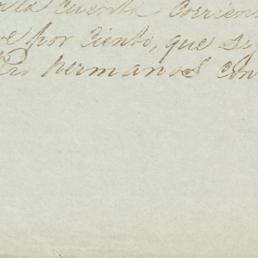 la cuenta corrien
por Ciento, que se
Rio hermanos con